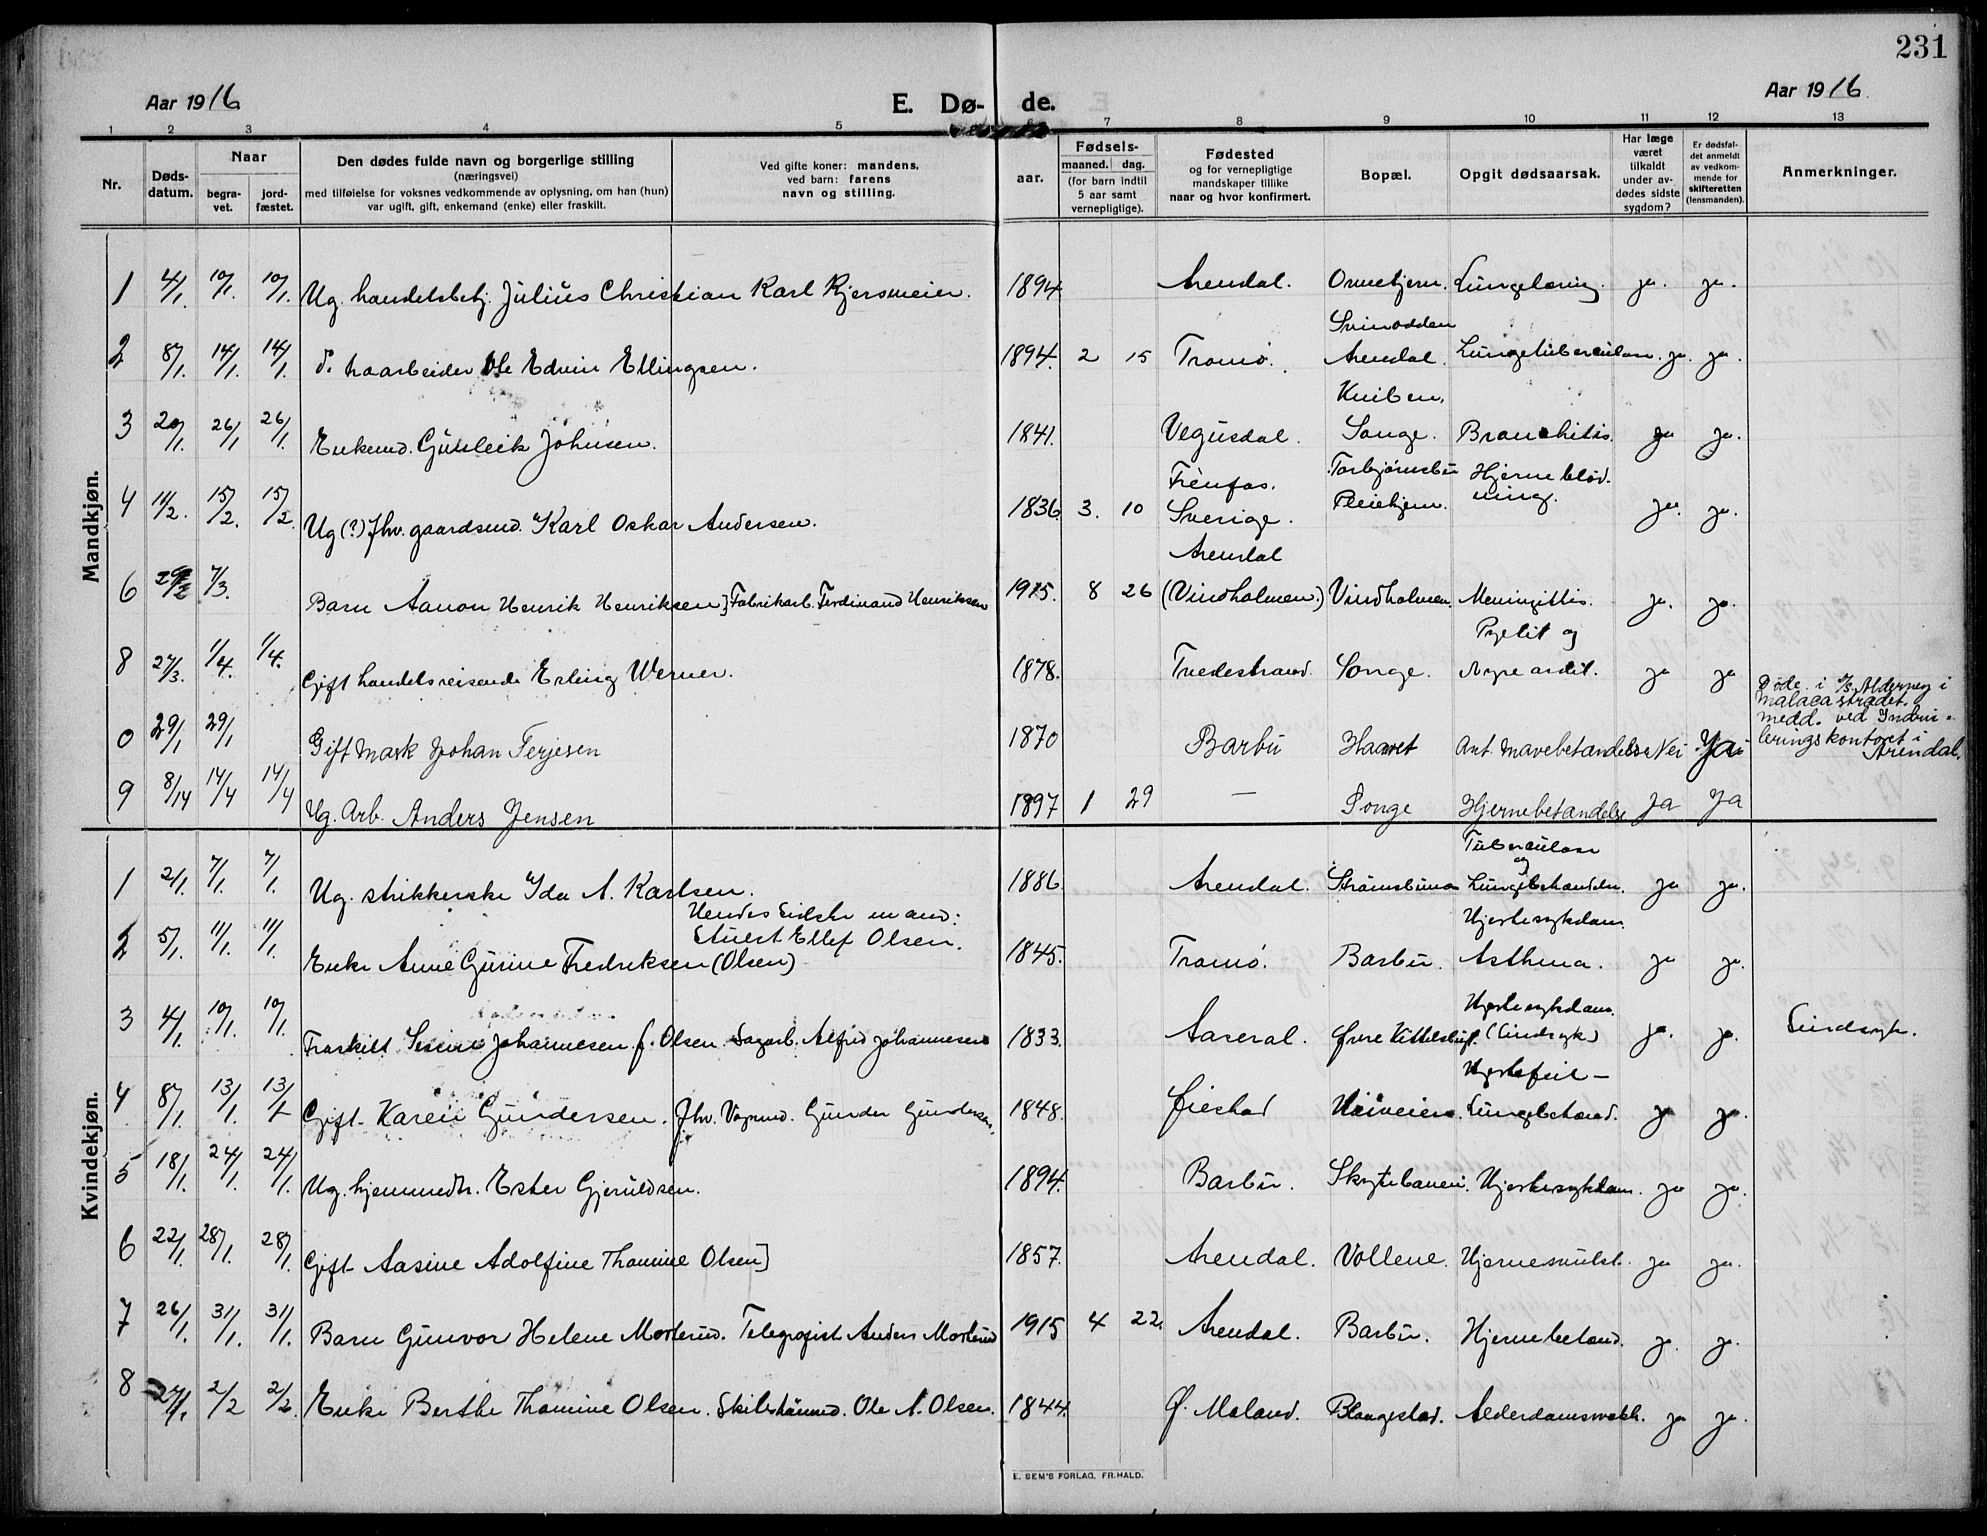 231
Aar 1916 E. Dø- de. Aar 1916
1 2 3 4 5 6 7 8 9 10 11 12 13
Nr. Døds-datum. Naar begra-vet. jord-fæstet. Den dødes fulde navn og borgerlige stilling (næringsvei) med tilføielse for voksnes vedkommende av oplysning, om han (hun) var ugift, gift, enkemand (enke) eller fraskilt. Ved gifte koner: mandens, ved barn: farens navn og stilling. aar. Fødsels- maaned. dag. (for barn indtil 5 aar samt vernepligtige). Fødested og for vernepligtige mandskaper tillike naar og hvor konfirmert. Bopæl. Opgit dødsaarsak. Har læge været tilkaldt under av-dødes sidste sygdom? Er dødsfal-det anmeldt av vedkom-mende for skifteretten (lensmanden). Anmerkninger.
Mandkjøn.
1 4/1 10/1. 10/1. Ug. handelsbetj. Julius Christian Karl Kjersmeier. 1894 Arendal. Lungetæring. ja. ja.
Svinodden
2 8/1. 14/1. 14/1. d. Ole Edvin Ellingsen. 1894. 2 15 Tromø. Arendal. Lungetuberculose. ja. ja.
Kniben.
3 20/1. 26/1 26/1. Enkemd. Gunleik Johnsen. 1841. Vegusdal. Songe. Bronchitis. ja ja.
4 11/2. 15/2. 15/2. Ug (?) fhv. gaardsmd. Karl Oskar Andersen. 1836 3. 10 Sverige. Torbjørnsbu Pleiehjem. Hjerneblød. ning. ja. ja.
Arendal
6 29/2 7/3. Barn Aanon Henrik Henriksen] Fabrikarb. Ferdinand Henriksen 1915. 8 26 (Vindholmen.) Vindholmen. Meningittis. ja. ja.
Pyelit og
8 27/3. 1/4. 1/4. Gift handelsreisende Erling Werner. 1878. Tvedestrand Songe. ja ja
0 29/1 29/1 Gift Mask Johan Terjesen 1870 Barbu Ant. mavebetændelse Nei Ja Døde i S/S Alderney i Malaca strædet. medd. ved Indrul-leringskontoret i Arendal.
9 8/14 14/4 14/4 Ug. Arb. Anders Jensen 1897 1 29 — Songe Hjernebetændelse Ja Ja
Kvindekjøn.
Tuberculose og
1 2/1. 7/1. 7/1. Ug. strikkerske Ida A. Karlsen. 1886 Arendal. Strømsbunes Lungebetændelse. ja ja.
Hendes sidste mand: Stuert Ellef Olsen. Hjertesykdom.
2 5/1. 11/1. 11/1. Enke Anne Gurine Fredriksen (Olsen) 1845. Tromø. Barbu. Asthma. ja ja.
Hjertesykdom.
3 4/1. 10/1. 10/1. Fraskilt Johannesen f. Olsen. Sagarb. Alfred Johannesen 1833. Aaseral. Øvre Kittelsbugt. (Sindsyk) ja. ja. Sindssyk.
Hjertefeil -
4 8/1. 13/1. 13/1 Gift Karen Gundersen. Fhv. Vognmd. Gunder Gundersen. 1848. Øiestad Lungebetænd. ja ja.
5 18/1. 24/1. 24/1. Ug. hjemmedtr. Ester Gjeruldsen. 1894. Barbu. Skytebanen. Hjertesykdom. ja ja.
6 22/1. 28/1. 28/1. Gift Aasine Adolfine Thomine Olsen] 1857. Arendal. Vollene. Hjernesvulst. ja ja.
7 26/1. 31/1. 31/1. Barn Gunvor Helene Mosterud. Telegrafist Anders Mosterud 1915 4 22. Arendal. Barbu. Hjernebetænd. ja. ja.
8 27/1. 2/2 2/2. Enke Berthe Thomine Olsen. Skibstømmd. Ole A. Olsen. 1844. Ø. Moland. Blaugestad. Alderdomssvakh. ja ja.
E. SEM'S FORLAG, FR.HALD.